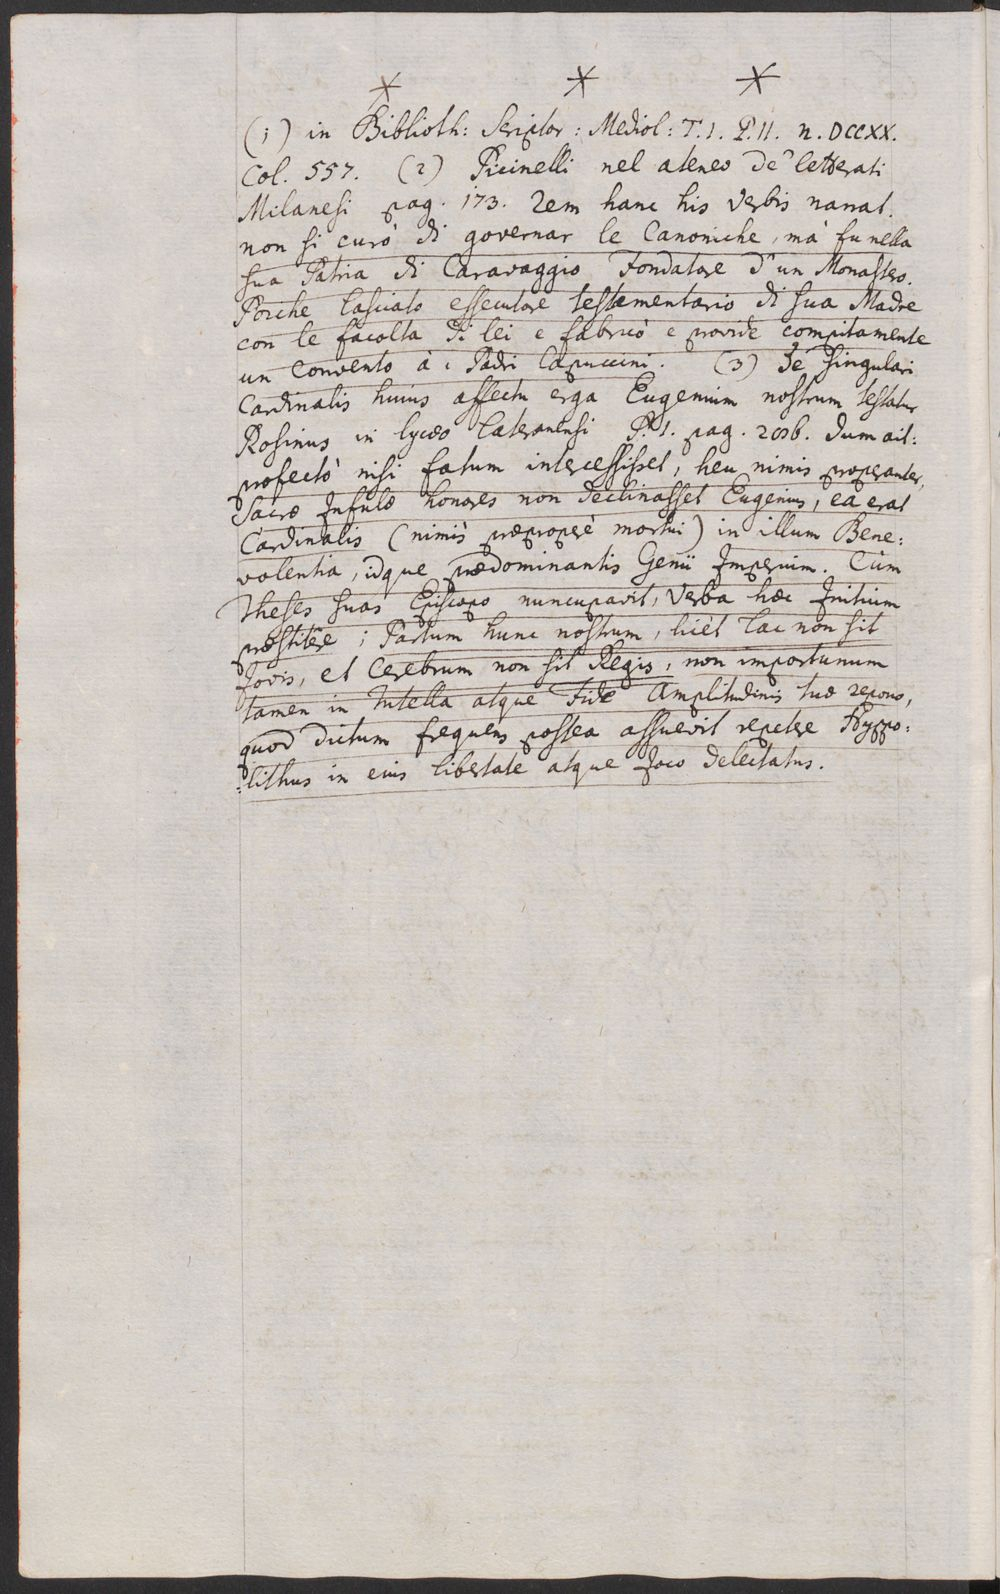 * * *
(1) in Biblioth: Scriptor: Mediol: T. 1. P. II. n. DCCXX.
Col. 557. (2) Picinelli nel ateneo de' letterati
Milanesi pag. 173. Rem hanc his verbis narrat.
non si curò di governar le Canoniche, mà fu nella
sua Patria di Caravaggio Fondatore d'un Monastero.
Poiche lasciato essecutore testamentario di sua Madre
con le facolta di lei e fabricò e provide compitamente
un Convento à i Padri Capuccini. (3) De singulari
Cardinalis huius affectu erga Eugenium nostrum testatur
Rosinus in lycæo lateranensi P. 1. pag. 206. dum ait:
profectò nisi fatum intercessisset, heu nimis properanter,
Sacræ Infulæ honores non declinasset Eugenius, ea erat
Cardinalis (nimis præproperè mortui) in illum Bene:
volentia, idque prædominantis Genii Imperium. Cùm
Theses suas Episcopo nuncupavit, verba hæc Initium
præstitêre; Partum hunc nostrum, licèt lac non sit
Jovis, et Cerebrum non sit Regis, non importunum
tamen in Tutella atque Fide Amplitudinis tuæ repono,
quod dictum frequens postea assuevit repetere Hyppo:
:lithus in eius libertate atque Joco delectatus.